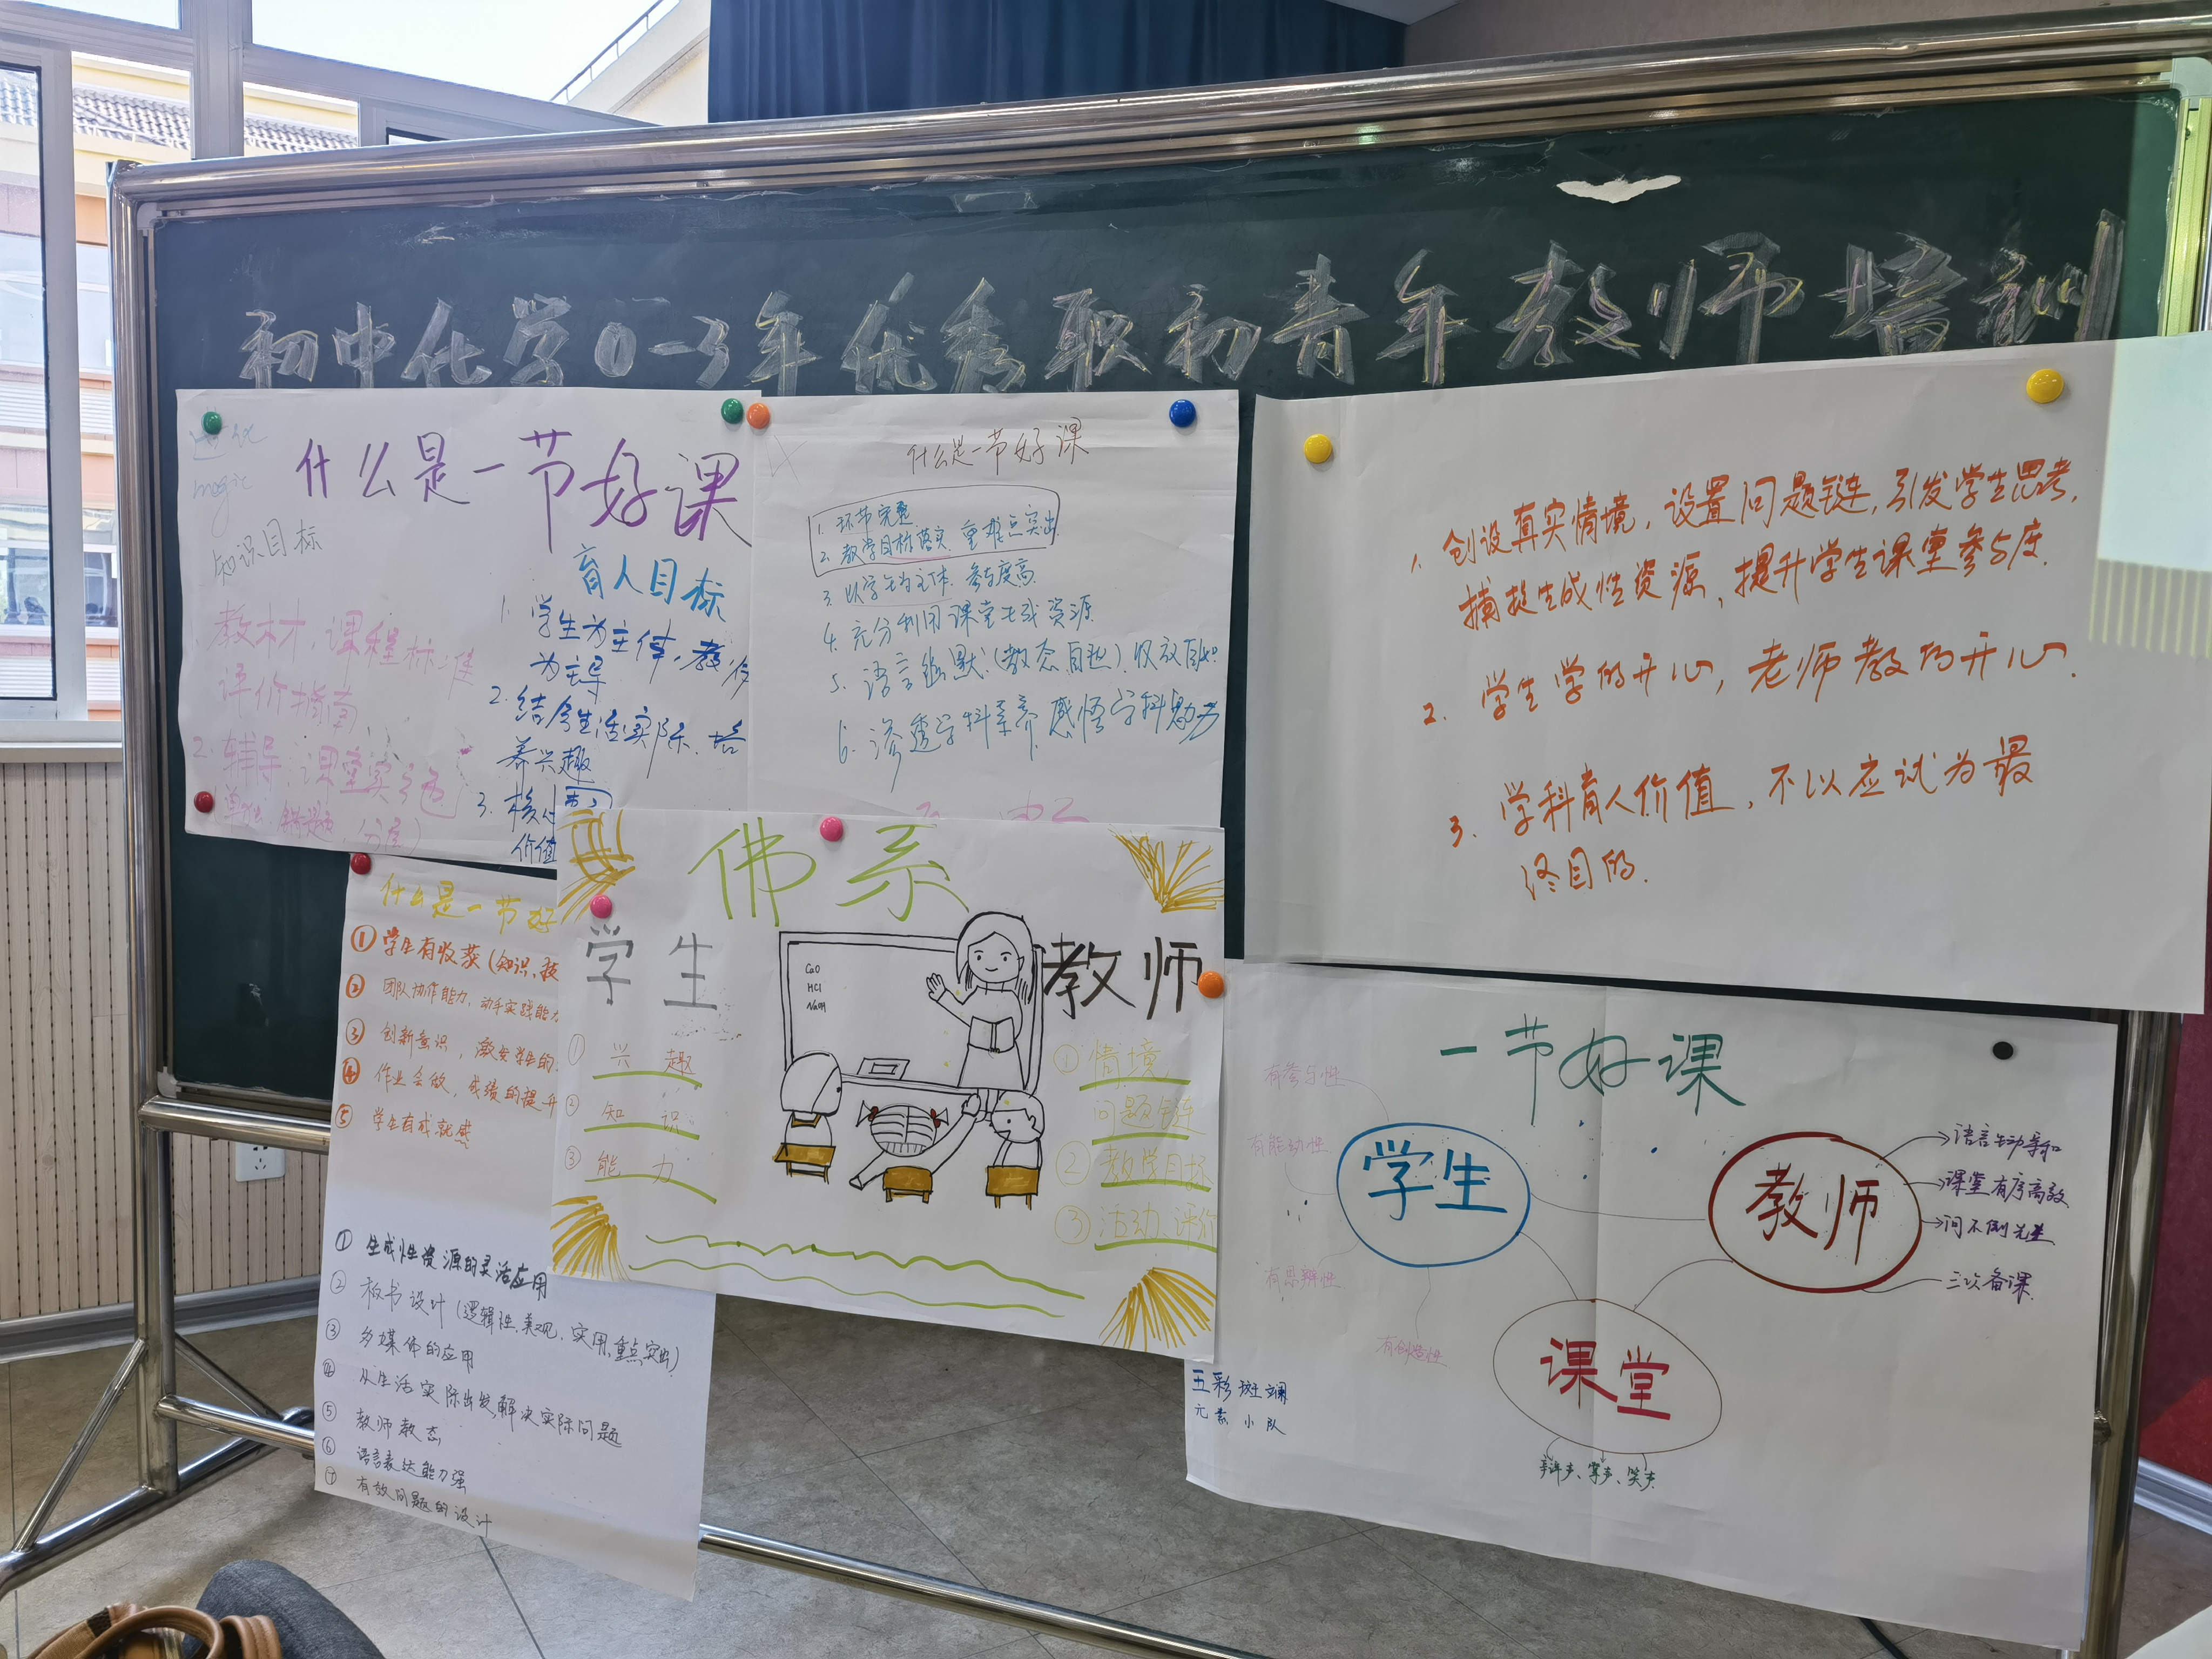 初中化学0-3年优秀职初青年教师培训
什么是一节好课
知识目标
教材、课程标准
评价指南
2. 辅导：课堂实
育人目标
1. 学生为主体，教
为主导
2. 结合生活实际，培
养兴趣
3. 核心
价值
什么是一节好课
1. 环节完整
2. 教学目标落实 重难点突出
3. 以学生为主体 参与度高
4. 充分利用课堂生成资源
5. 语言幽默（教态自然）收放自如
6. 渗透学科素养 感悟学科魅力
1. 创设真实情境，设置问题链，引发学生思考，
捕捉生成性资源，提升学生课堂参与度.
2. 学生学的开心，老师教的开心.
3. 学科育人价值，不以应试为最
终目的.
什么是一节好
① 学生有收获（知识、技
② 团队协作能力，动手实践能力
③ 创新意识，激发学生的
④ 作业会做，成绩的提升
⑤ 学生有成就感
① 生成性资源的灵活应用
② 板书设计（逻辑性、美观、实用、重点突出）
③ 多媒体的应用
④ 从生活实际出发，解决实际问题
⑤ 教师教态
⑥ 语言表达能力强
⑦ 有效问题的设计
佛系
学生
① 兴趣
② 知识
③ 能力
CaO
HCl
NaOH
教师
① 情境，
问题链
② 教学目标
③ 活动、评价
一节好课
学生
有参与性
有能动性
有思辨性
有创造性
教师
语言生动亲和
课堂有序高效
问不倒先生
三次备课
课堂
掌声、笑声
五彩斑斓
元素小队